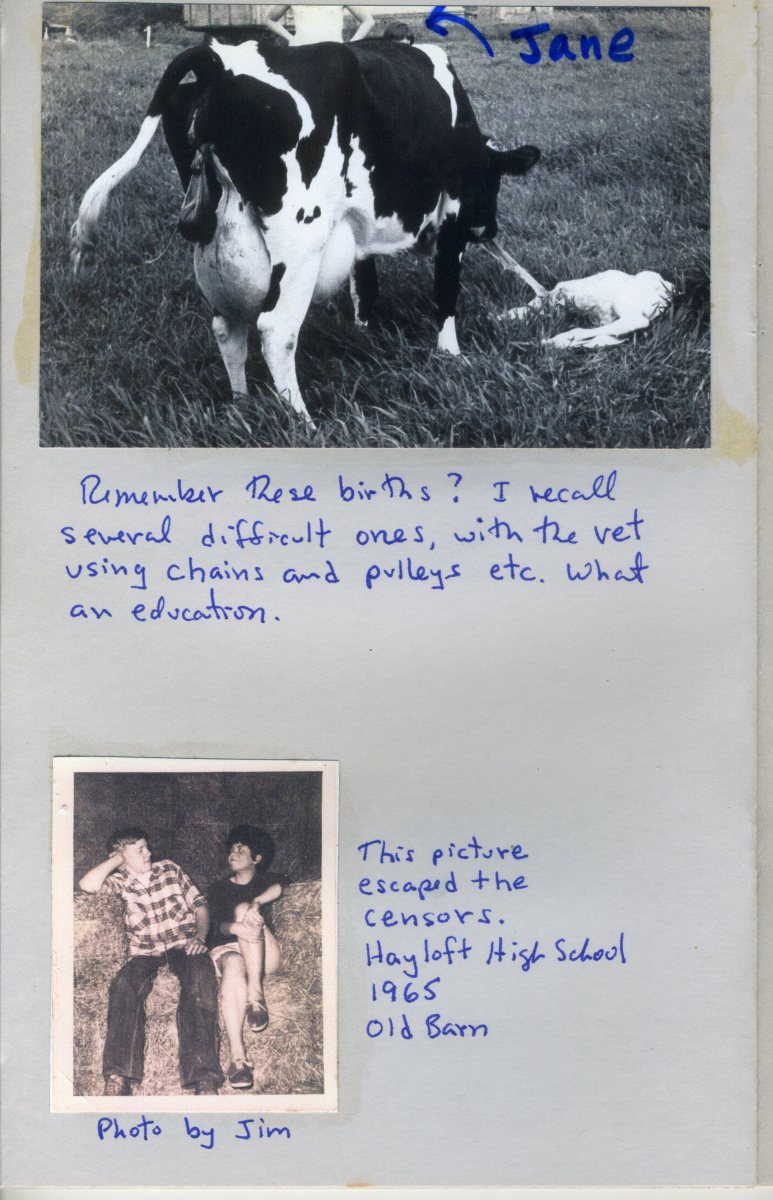 Jane
Remember these births? I recall
several difficult ones, with the vet
using chains and pulleys etc. What
an education.
This picture
escaped the
censors.
Hayloft High School
1965
Old Barn
Photo by Jim